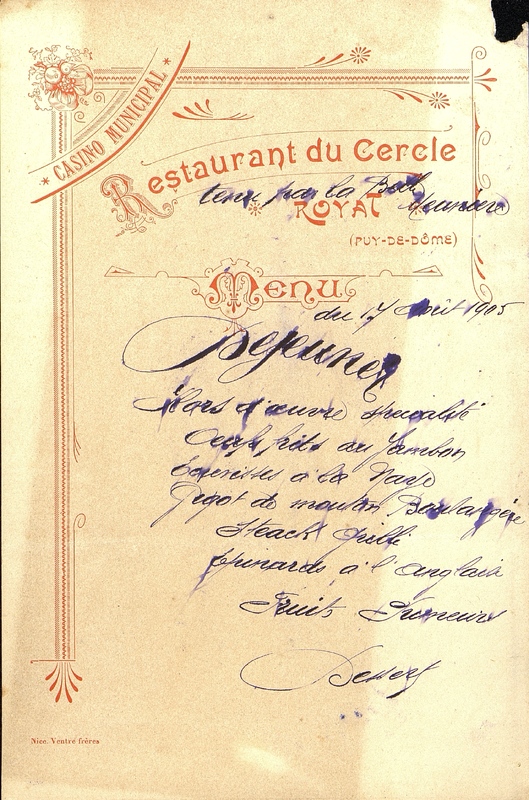 * CASINO MUNICIPAL *
Restaurant du Cercle
tenu par la Belle Meunière
ROYAT
(PUY-DE-DÔME)
MENU
du 17 Août 1905
Dejeuner
Hors d'œuvre spécialité
Oeufs frits au Jambon
Ecrevisses à la Nage
Gigot de mouton Boulangère
Steack Grillé
Epinards à l'anglaise
Fruits Primeurs
Dessert
Nice. Ventre frères